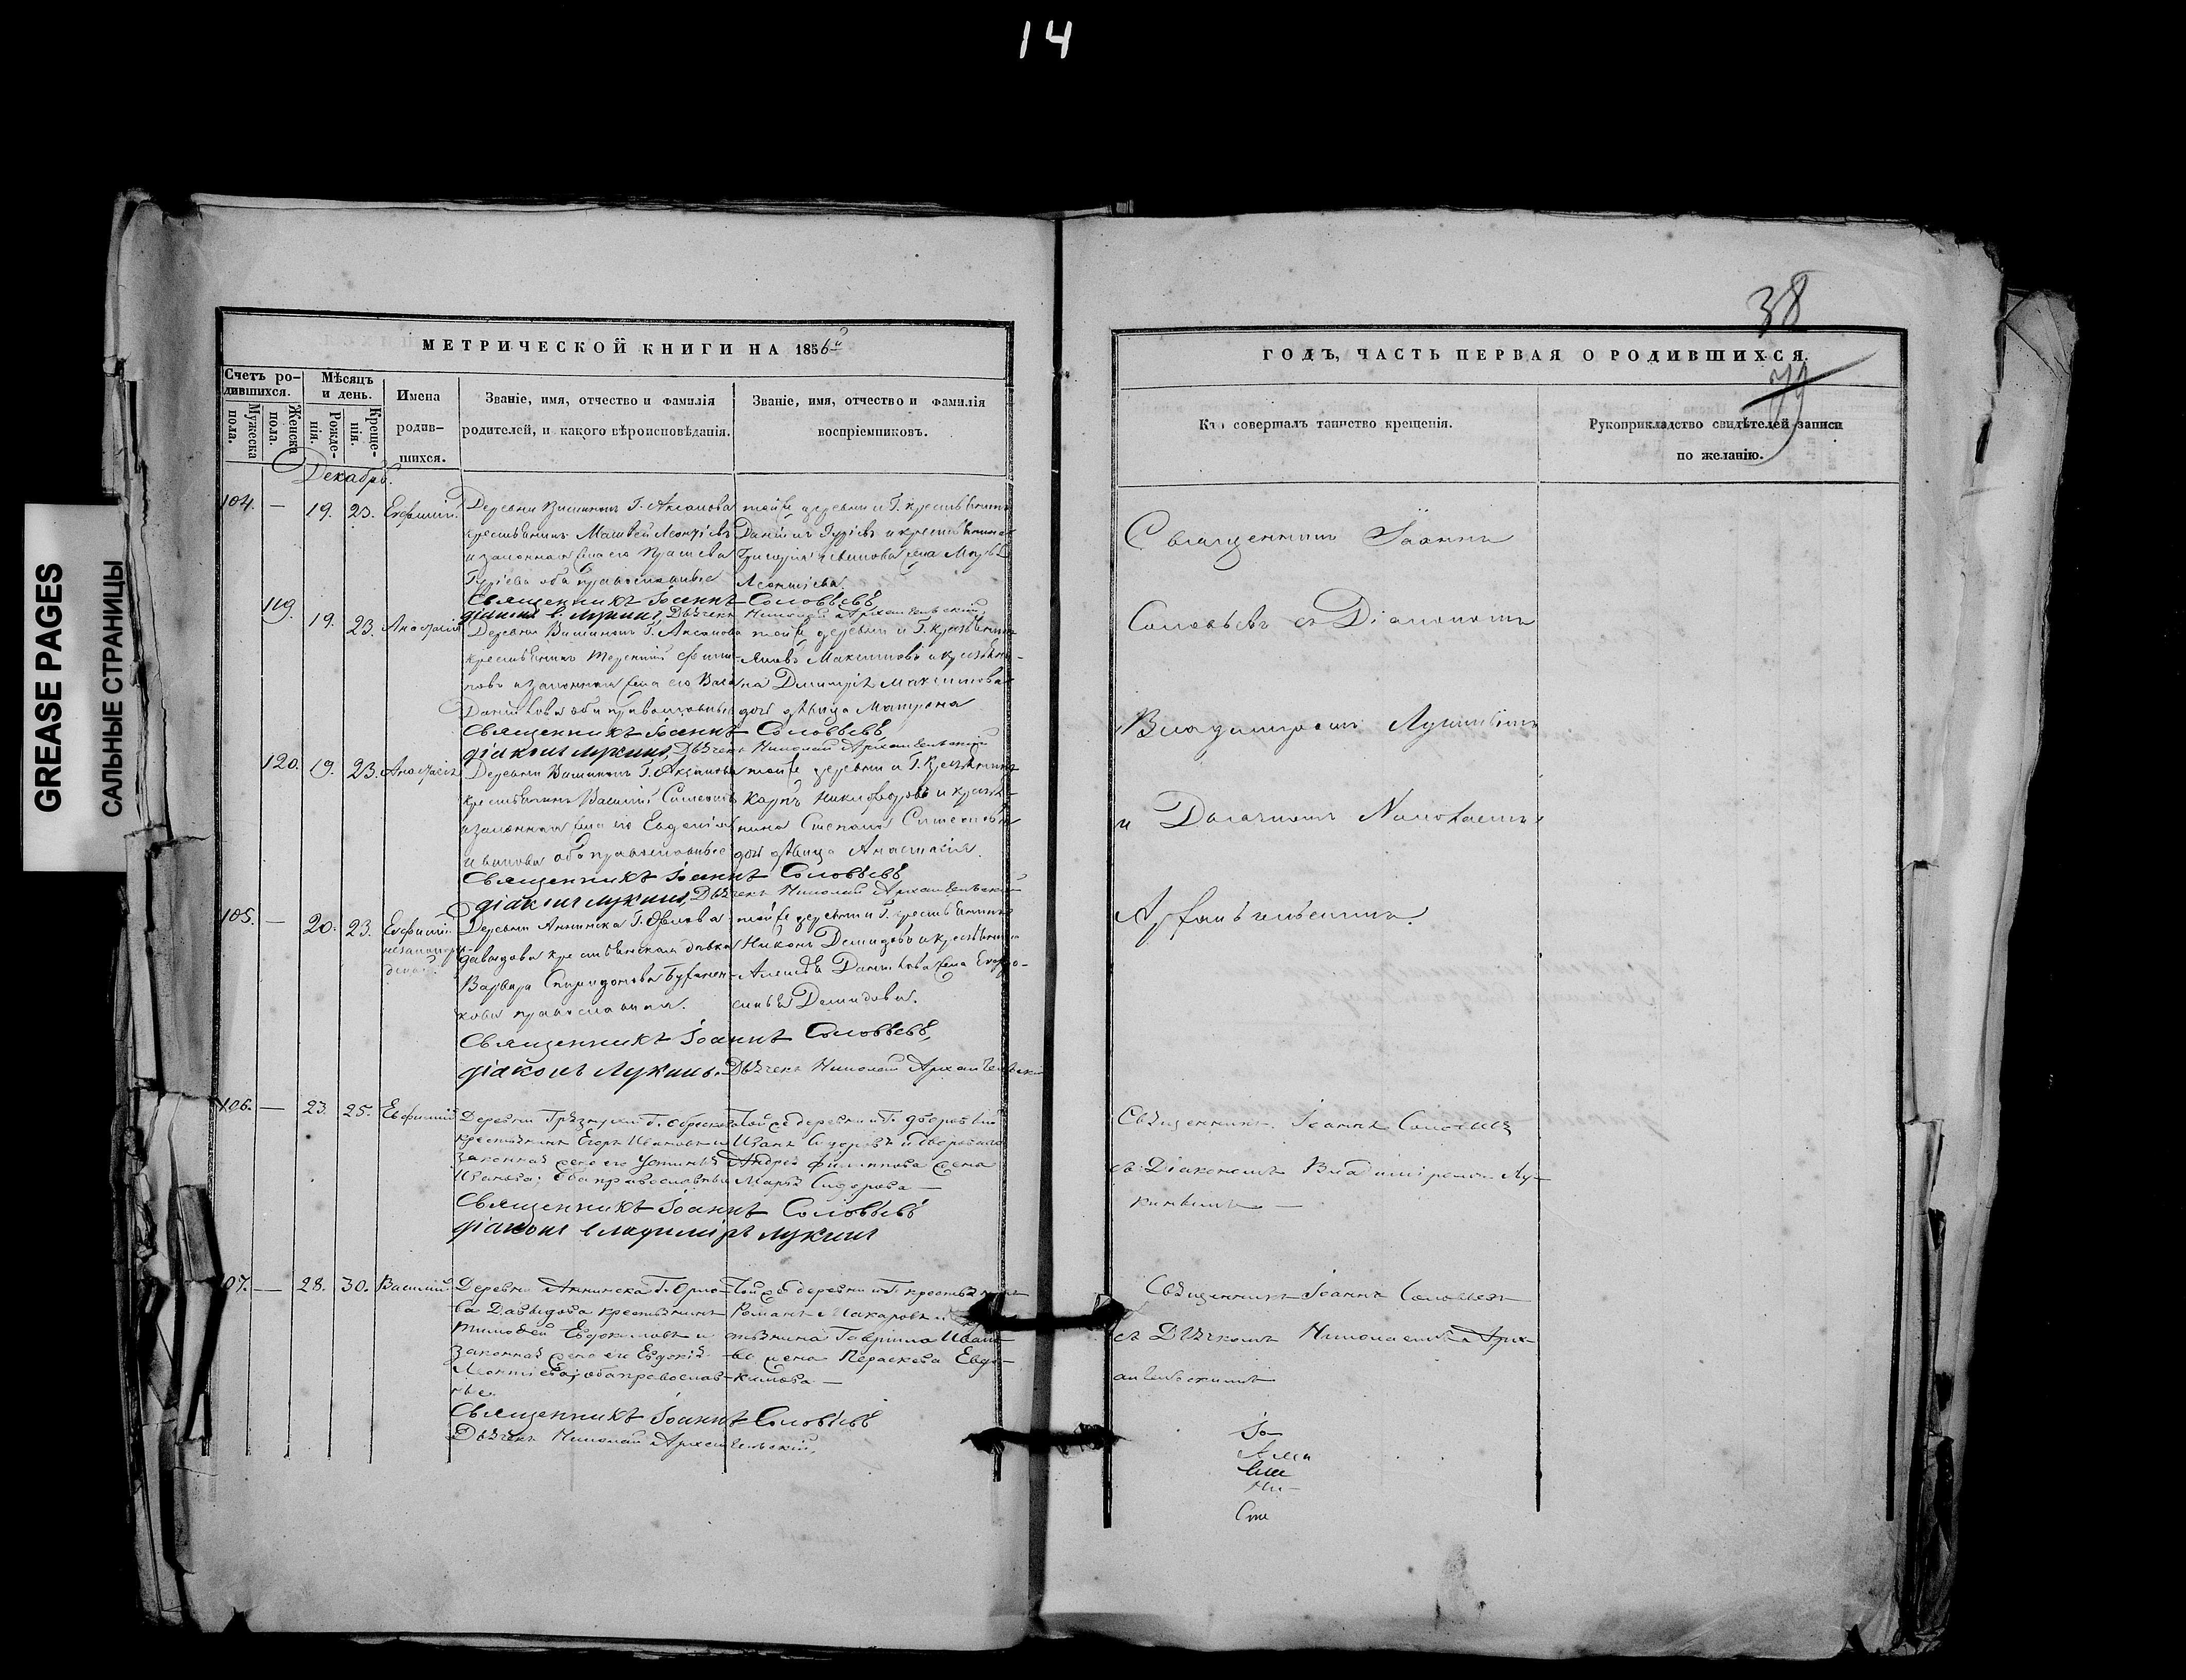 14
GREASE PAGES
САЛЬНЫЕ СТРАНИЦЫ
МЕТРИЧЕСКОЙ КНИГИ НА 1856й
Счетъ родившихся.
Мужеска пола.
Женска пола.
Мѣсяцъ и день.
Рожденія.
Крещенія.
Имена родившихся.
Званіе, имя, отчество и фамилія
родителей, и какого вѣроисповѣданія.
Званіе, имя, отчество и фамилія
воспріемниковъ.
Декабрь.
104. — 19. 23. Евфимій.
Деревни Г. Аксакова
крестьянинъ Матвей Леонтіевъ
и законная жена его
Гуріева оба православные
той же деревни и Г. крестьянинъ
Даніилъ Гуріевъ и крестьянина
Григорія жена
Леонтіева.
Священникъ Іоаннъ Соловьевъ,
діаконъ В. Лукинъ, Дьячекъ Николай Архангельскій.
119. 19. 23. Анастасія
Деревни Г. Аксакова
крестьянинъ Терентій
и законная жена его
оба православные
той же деревни и Г. крестьянинъ
Яковъ Максимовъ и крестьяни-
на Димитрія Максимова
дочь дѣвица Матрона
Священникъ Іоаннъ Соловьевъ,
діаконъ Лукинъ, Дьячекъ Николай Архангельскій
120. 19. 23. Анастасія
Деревни Г. Аксакова
крестьянинъ Василій Симеоновъ
и законная жена его Евгенія
Иванова оба православные
той же деревни и Г. крестьянинъ
Карпъ Никифоровъ и крестья-
нина Степана Симеонова
дочь дѣвица Анастасія.
Священникъ Іоаннъ Соловьевъ
діаконъ Лукинъ, Дьячекъ Николай Архангельскій
105. — 20. 23. Евфимій
незаконнорож-
денный.
Деревни Аннинска Г. Орлова
Давыдова крестьянская дѣвка
Варвара Спиридонова
православная.
той же деревни и Г. крестьянинъ
Никонъ Демидовъ и крестьянина
Алексѣя Данилова жена Евфро-
синья Демидова.
Священникъ Іоаннъ Соловьевъ,
діаконъ Лукинъ. Дьячекъ Николай Архангельскій
106. — 23. 25. Евфимій
Деревни Г.
крестьянинъ Егоръ Ивановъ и
законная жена его Устинья
Иванова; оба православные
Той же деревни и Г. дворовый
Иванъ Сидоровъ и двороваго
Андрея Филиппова жена
Марья Сидорова —
Священникъ Іоаннъ Соловьевъ
діаконъ Владиміръ Лукинъ
107. — 28. 30. Василій
Деревни Аннинска Г. Орло-
ва Давыдова крестьянинъ
Тимофей Евдокимовъ и
законная жена его Евдокія
Леонтіева; оба православ-
ные.
Той же деревни и Г. крестьянинъ
Романъ Макаровъ и
стьянина Гавріила Ивано-
ва жена Параскева Евдо-
кимова —
Священникъ Іоаннъ Соловьевъ
Дьячекъ Николай Архангельскій.
38
79
ГОДЪ, ЧАСТЬ ПЕРВАЯ О РОДИВШИХСЯ.
Кто совершалъ таинство крещенія.
Рукоприкладство свидѣтелей записи
по желанію.
Священникъ Іоаннъ
Соловьевъ съ Діакономъ
Владиміромъ Лукинымъ
и Дьячкомъ Николаемъ
Архангельскимъ.
Священникъ Іоаннъ Соловьевъ
съ Діакономъ Владиміромъ Лу-
кинымъ —
Священникъ Іоаннъ Соловьевъ
съ Дьячкомъ Николаемъ Арх-
ангельскимъ